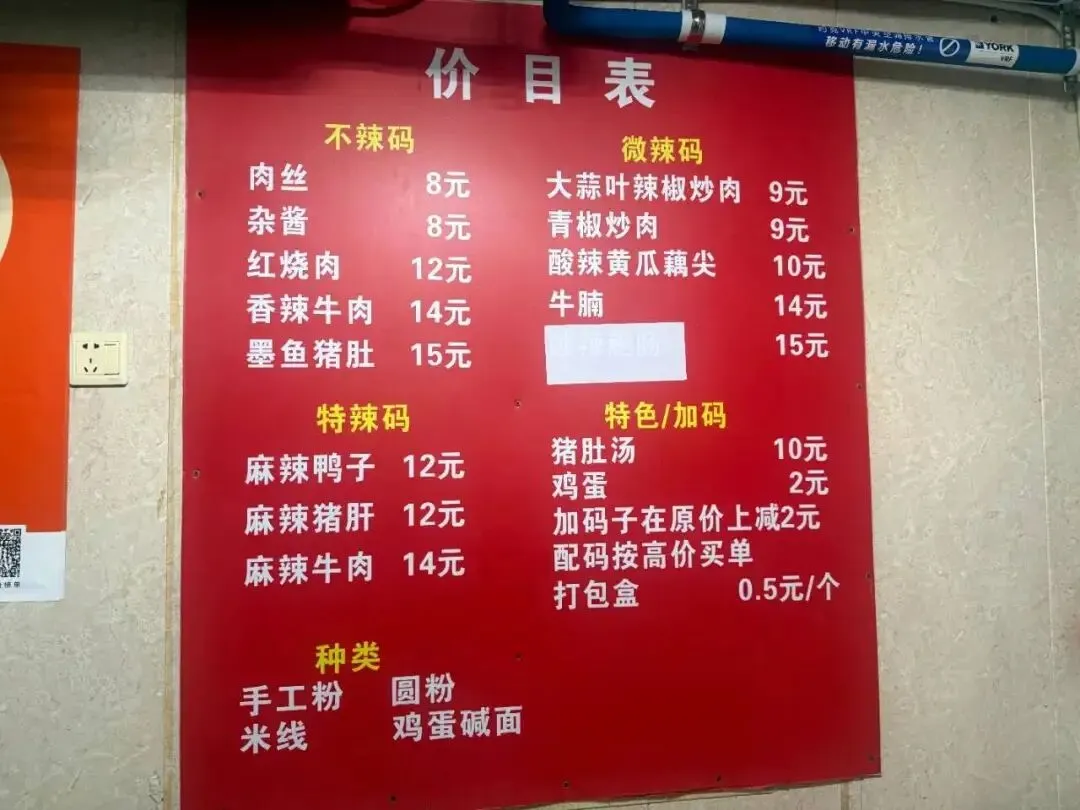 价目表
不辣码
肉丝 8元
杂酱 8元
红烧肉 12元
香辣牛肉 14元
墨鱼猪肚 15元
微辣码
大蒜叶辣椒炒肉 9元
青椒炒肉 9元
酸辣黄瓜藕尖 10元
牛腩 14元
15元
特辣码
麻辣鸭子 12元
麻辣猪肝 12元
麻辣牛肉 14元
特色/加码
猪肚汤 10元
鸡蛋 2元
加码子在原价上减2元
配码按高价买单
打包盒 0.5元/个
种类
手工粉 圆粉
米线 鸡蛋碱面
移动有漏水危险!
YORK
VRF